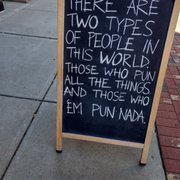 THERE ARE
TWO TYPES
OF PEOPLE IN
THIS WORLD.
THOSE WHO PUN
ALL THE THINGS
AND THOSE WHO
£M PUN NADA.